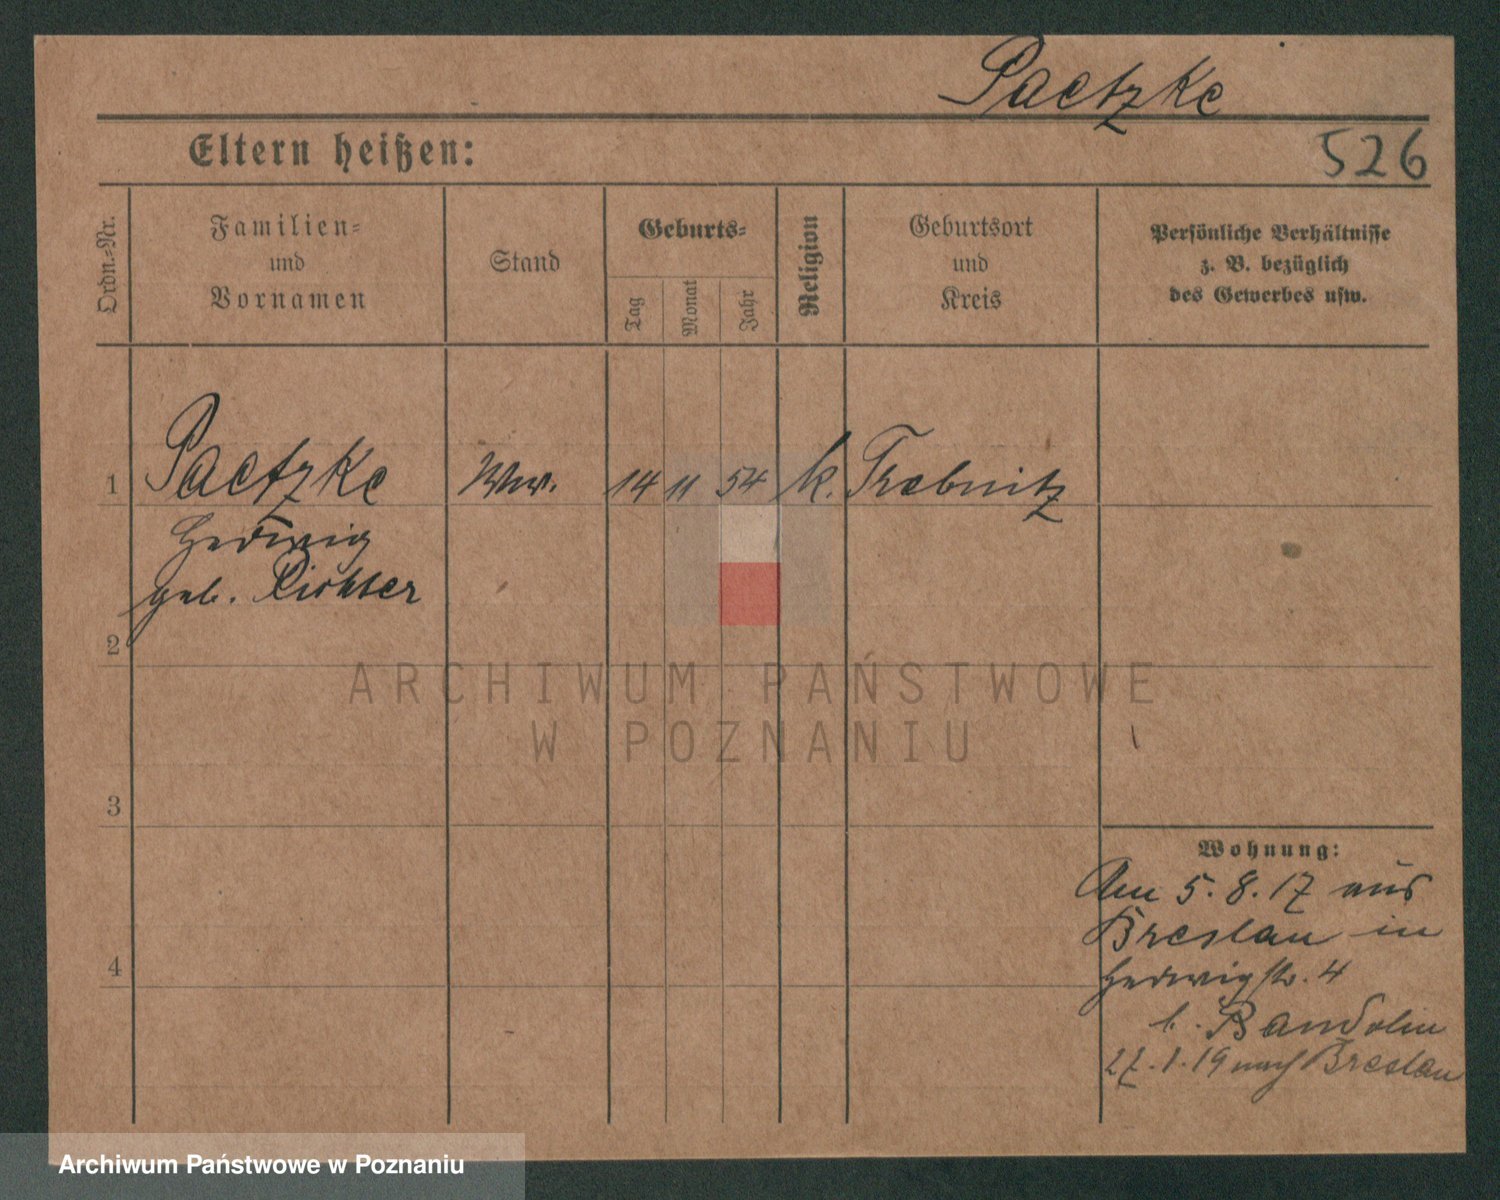 Paetzke
Eltern heißen:
526
Ordn.-Nr.
Familien-
und
Vornamen
Stand
Geburts-
Tag
Monat
Jahr
Religion
Geburtsort
und
Kreis
Persönliche Verhältnisse
z. B. bezüglich
des Gewerbes usw.
1 Paetzke Ww. 14 11 54 k. Trebnitz
Hedwig
geb. Richter
2
ARCHIWUM PAŃSTWOWE
W POZNANIU
3
Wohnung:
Am 5.8.17 aus
Breslau in
4
Hedwigstr. 4
b. Bandolin
27.1.19 nach Breslau
Archiwum Państwowe w Poznaniu